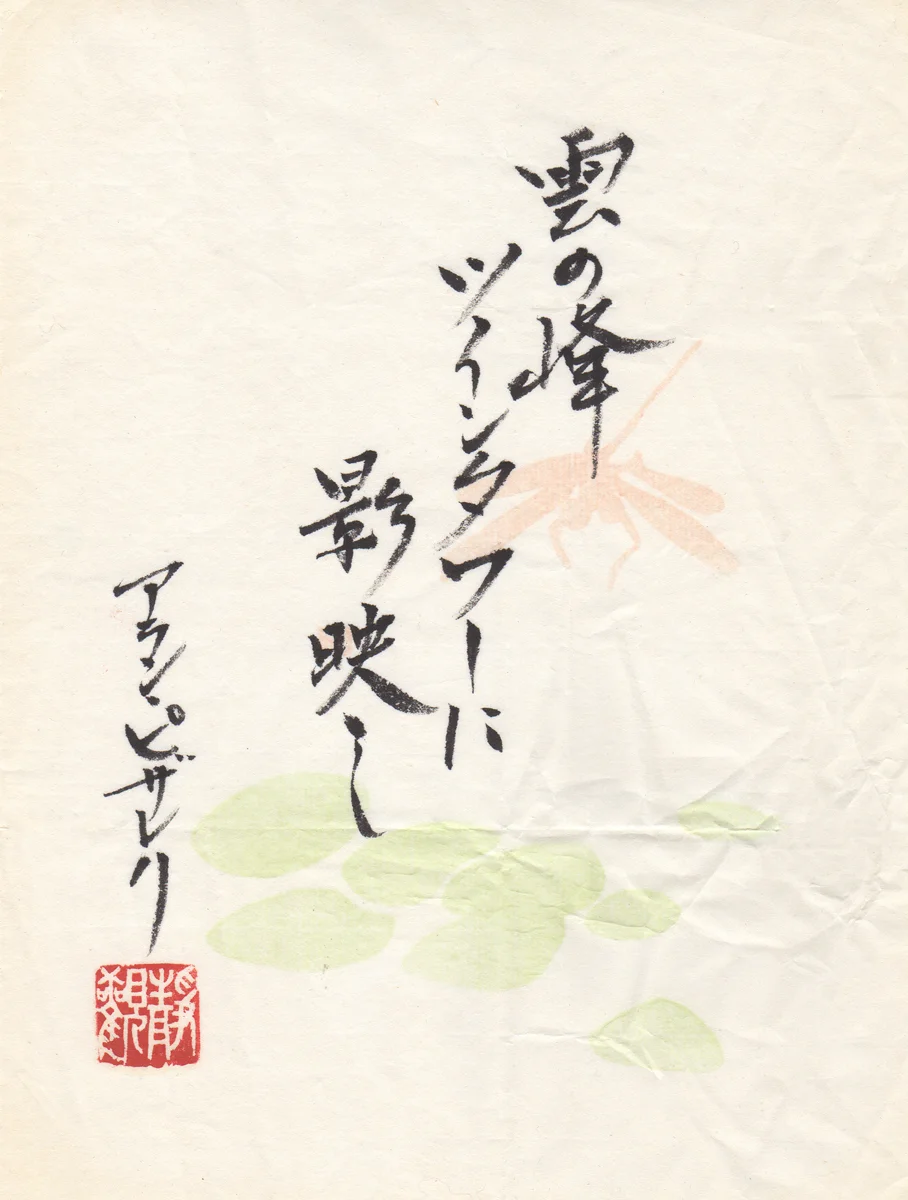 雲の峰
ツインタワーに
影映し
アラン・ピザレリ
靜觀